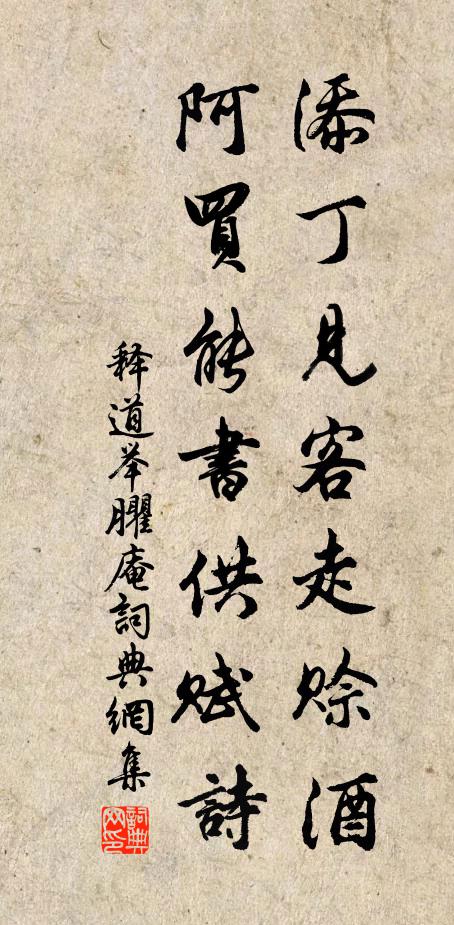 添丁見客走賒酒
阿買能書供賦詩
释道举臞庵詞典網集
詞典网印